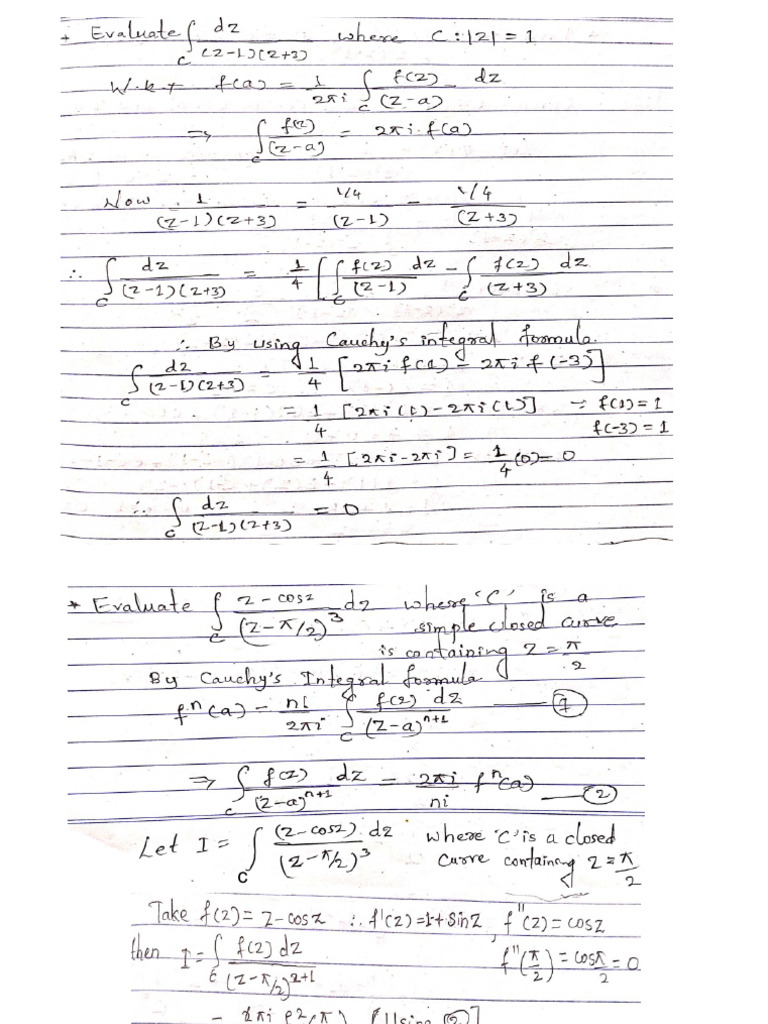 + Evaluate ∫_C dz/((z-1)(z+3)) where C : |z| = 1
W.k.t f(a) = 1/2πi ∫_C f(z)/(z-a) dz
⇒ ∫_C f(z)/(z-a) = 2πi. f(a)
Now 1/((z-1)(z+3)) = 1/4/(z-1) - 1/4/(z+3)
∴ ∫_C dz/((z-1)(z+3)) = 1/4 [∫_C f(z) dz/(z-1) - ∫_C f(z) dz/(z+3)
∴ By using Cauchy's integral formula.
∫_C dz/((z-1)(z+3)) = 1/4 [2πi f(1) - 2πi f(-3)]
= 1/4 [2πi(1) - 2πi(1)] ∵ f(1) = 1
f(-3) = 1
= 1/4 [2πi - 2πi] = 1/4 (0) = 0
∴ ∫_C dz/((z-1)(z+3)) = 0
* Evaluate ∫_C (z - cosz)/(z - π/2)^3 dz where 'C' is a
simple closed curve
is containing z = π/2
By Cauchy's Integral formula
f^n(a) = n!/2πi ∫_C f(z) dz/(z-a)^(n+1) — ①
⇒ ∫_C f(z) dz/(z-a)^(n+1) = 2πi/n! f^n(a) — ②
Let I = ∫_C (z-cosz).dz/(z-π/2)^3 where 'C' is a closed
curve containing z = π/2
Take f(z) = z - cosz ∴ f'(z) = 1 + sinz, f''(z) = cosz
then I = ∫_C f(z) dz/(z-π/2)^(2+1) f''(π/2) = cosπ/2 = 0
[Using ②]